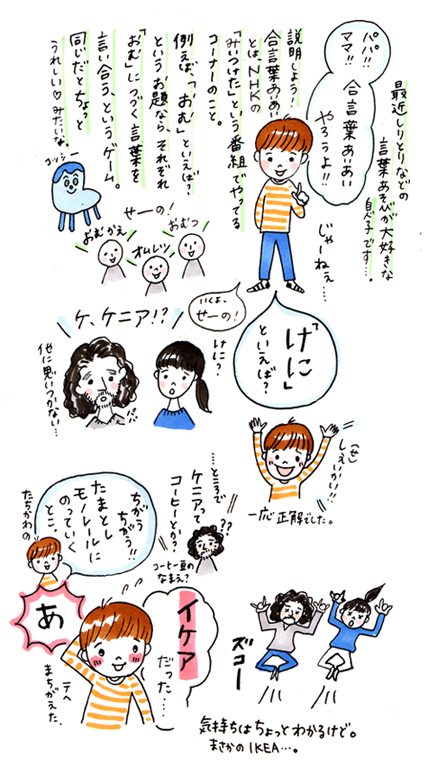 最近しりとりなどの
言葉あそびが大好きな
息子です…。
パパ!!
ママ!!
合言葉あいあい
やろうよ!!
じゃーねぇ…
説明しよう!
合言葉あいあい
とは、NHKの
「みいつけた」という番組でやってる
コーナーのこと。
例えば、「おむ」といえば?
というお題なら、それぞれ
「おむ」につづく言葉を
言い合う、というゲーム。
同じだとちょっと
うれしい♡みたいな。
コッシー
せーの!
おむかえ
オムレツ
おむつ
いくよ、
せーの!
「けに」
といえば?
けに?
ケ、ケニア!?
パパ
他に思いつかない…
(せ)
しぇいかい!!
一応正解でした。
…ところで
ケニアって
コーヒーとか?
??
コーヒー豆の
なまえ?
ちがう
ちがう!!
たまとし
モノレールに
のっていく
とこ。
たちかわの
あ
イケア
だった…
テヘ
まちがえた。
ズコー
気持ちはちょっとわかるけど。
まさかのIKEA…。